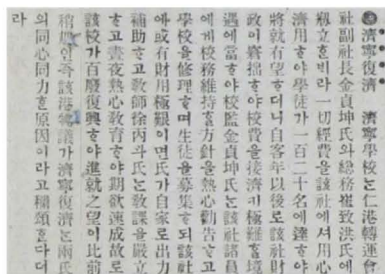 ◉濟寧復濟 濟寧學校는仁港轉運會
社副社長金貞坤氏와總務崔致洪氏에
剏立ᄒᆞᆫ비라一切經費을該社에셔用心
濟用ᄒᆞ야學徒가一百二十名에達ᄒᆞ야
將就有望ᄒᆞ더니自客年以後로該社財
政이窘拙ᄒᆞ야校費을接濟키極難ᄒᆞᆫ境
遇에當ᄒᆞ야校監金貞坤氏는該社諸員
에게校務維持ᄒᆞᆯ方針을熱心勸告ᄒᆞ고
學校을修理ᄒᆞ며生徒을募集ᄒᆞ되該社
에或有財用極艱이면氏가自家로出力
補助ᄒᆞ고敎師徐丙와氏는敎課을嚴立
ᄒᆞ고晝夜熱心敎育ᄒᆞ야期欲速成故로
該校가百廢復興ᄒᆞ야進就之望이比前
稍勝인즉該港物議가濟寧復濟는兩氏
의同心同力ᄒᆞᆫ原因이라고稱頌ᄒᆞᆫ다더
라